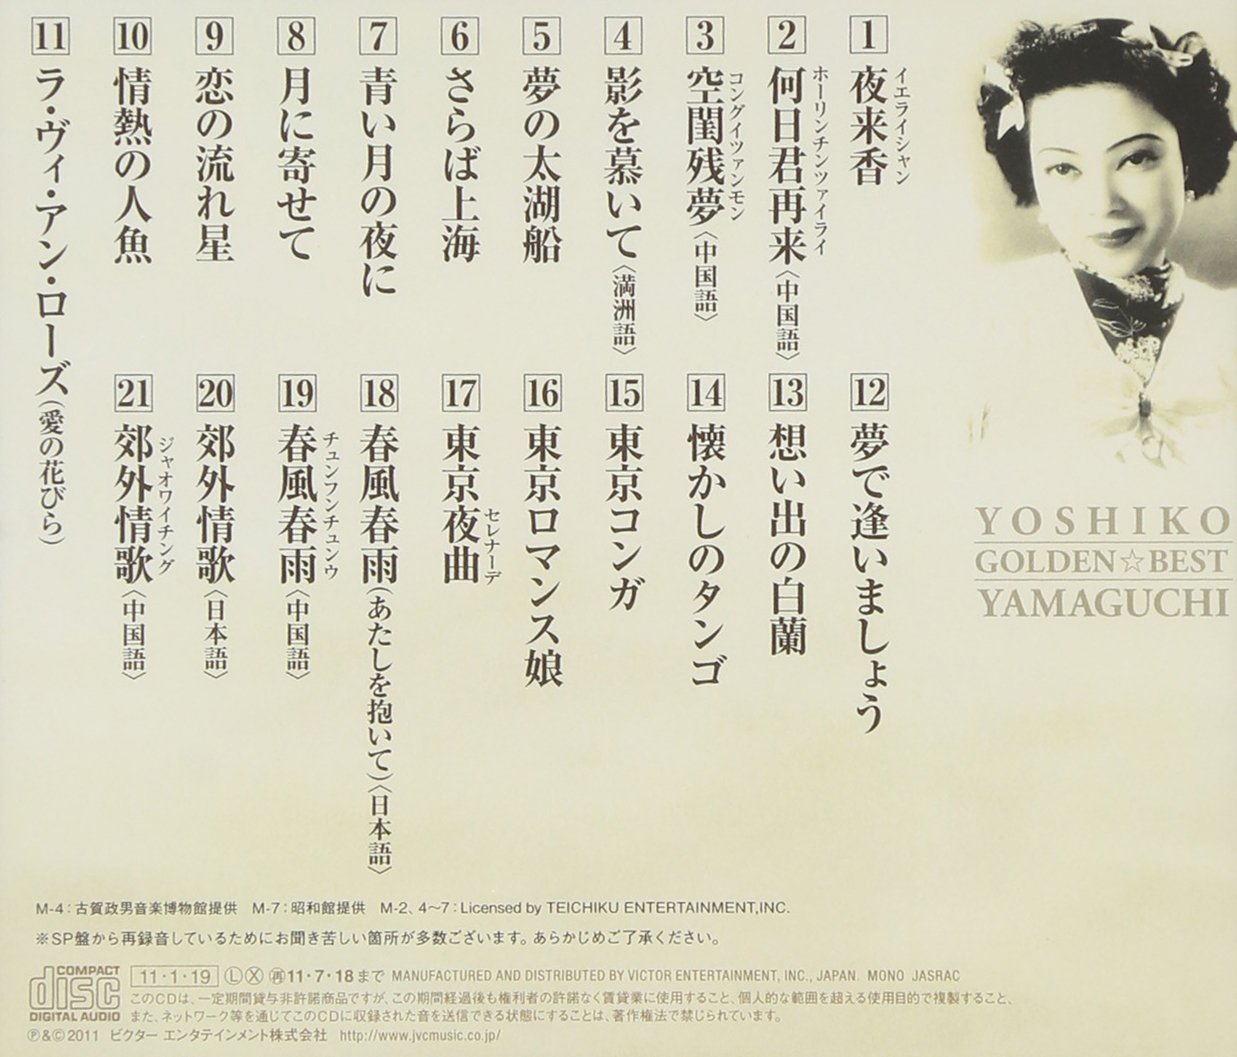 1 夜来香
イエライシャン
2 何日君再来〈中国語〉
ホーリンチンツァイライ
3 空閨残夢〈中国語〉
コングイツァンモン
4 影を慕いて〈満洲語〉
5 夢の太湖船
6 さらば上海
7 青い月の夜に
8 月に寄せて
9 恋の流れ星
10 情熱の人魚
11 ラ・ヴィ・アン・ローズ(愛の花びら)
12 夢で逢いましょう
13 想い出の白蘭
14 懐かしのタンゴ
15 東京コンガ
16 東京ロマンス娘
17 東京夜曲
セレナーデ
18 春風春雨(あたしを抱いて)〈日本語〉
19 春風春雨〈中国語〉
チュンフンチュンウ
20 郊外情歌〈日本語〉
21 郊外情歌〈中国語〉
ジャオワイチング
YOSHIKO
GOLDEN☆BEST
YAMAGUCHI
M-4：古賀政男音楽博物館提供　M-7：昭和館提供　M-2、4〜7：Licensed by TEICHIKU ENTERTAINMENT,INC.
※SP盤から再録音しているためにお聞き苦しい箇所が多数ございます。あらかじめご了承ください。
COMPACT disc DIGITAL AUDIO
11・1・19 Ⓛ Ⓧ ㊢11・7・18まで MANUFACTURED AND DISTRIBUTED BY VICTOR ENTERTAINMENT, INC., JAPAN. MONO JASRAC
このCDは、一定期間貸与非許諾商品ですが、この期間経過後も権利者の許諾なく賃貸業に使用すること、個人的な範囲を超える使用目的で複製すること、
また、ネットワーク等を通じてこのCDに収録された音を送信できる状態にすることは、著作権法で禁じられています。
Ⓟ&©2011 ビクター エンタテインメント株式会社 http://www.jvcmusic.co.jp/